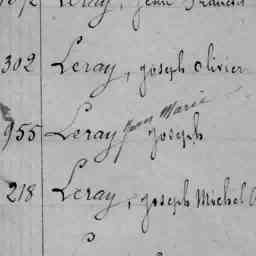 Leray, Jean François
302 Leray, Joseph Olivier
Jean Marie
955 Leray Joseph
218 Leray, Joseph Michel